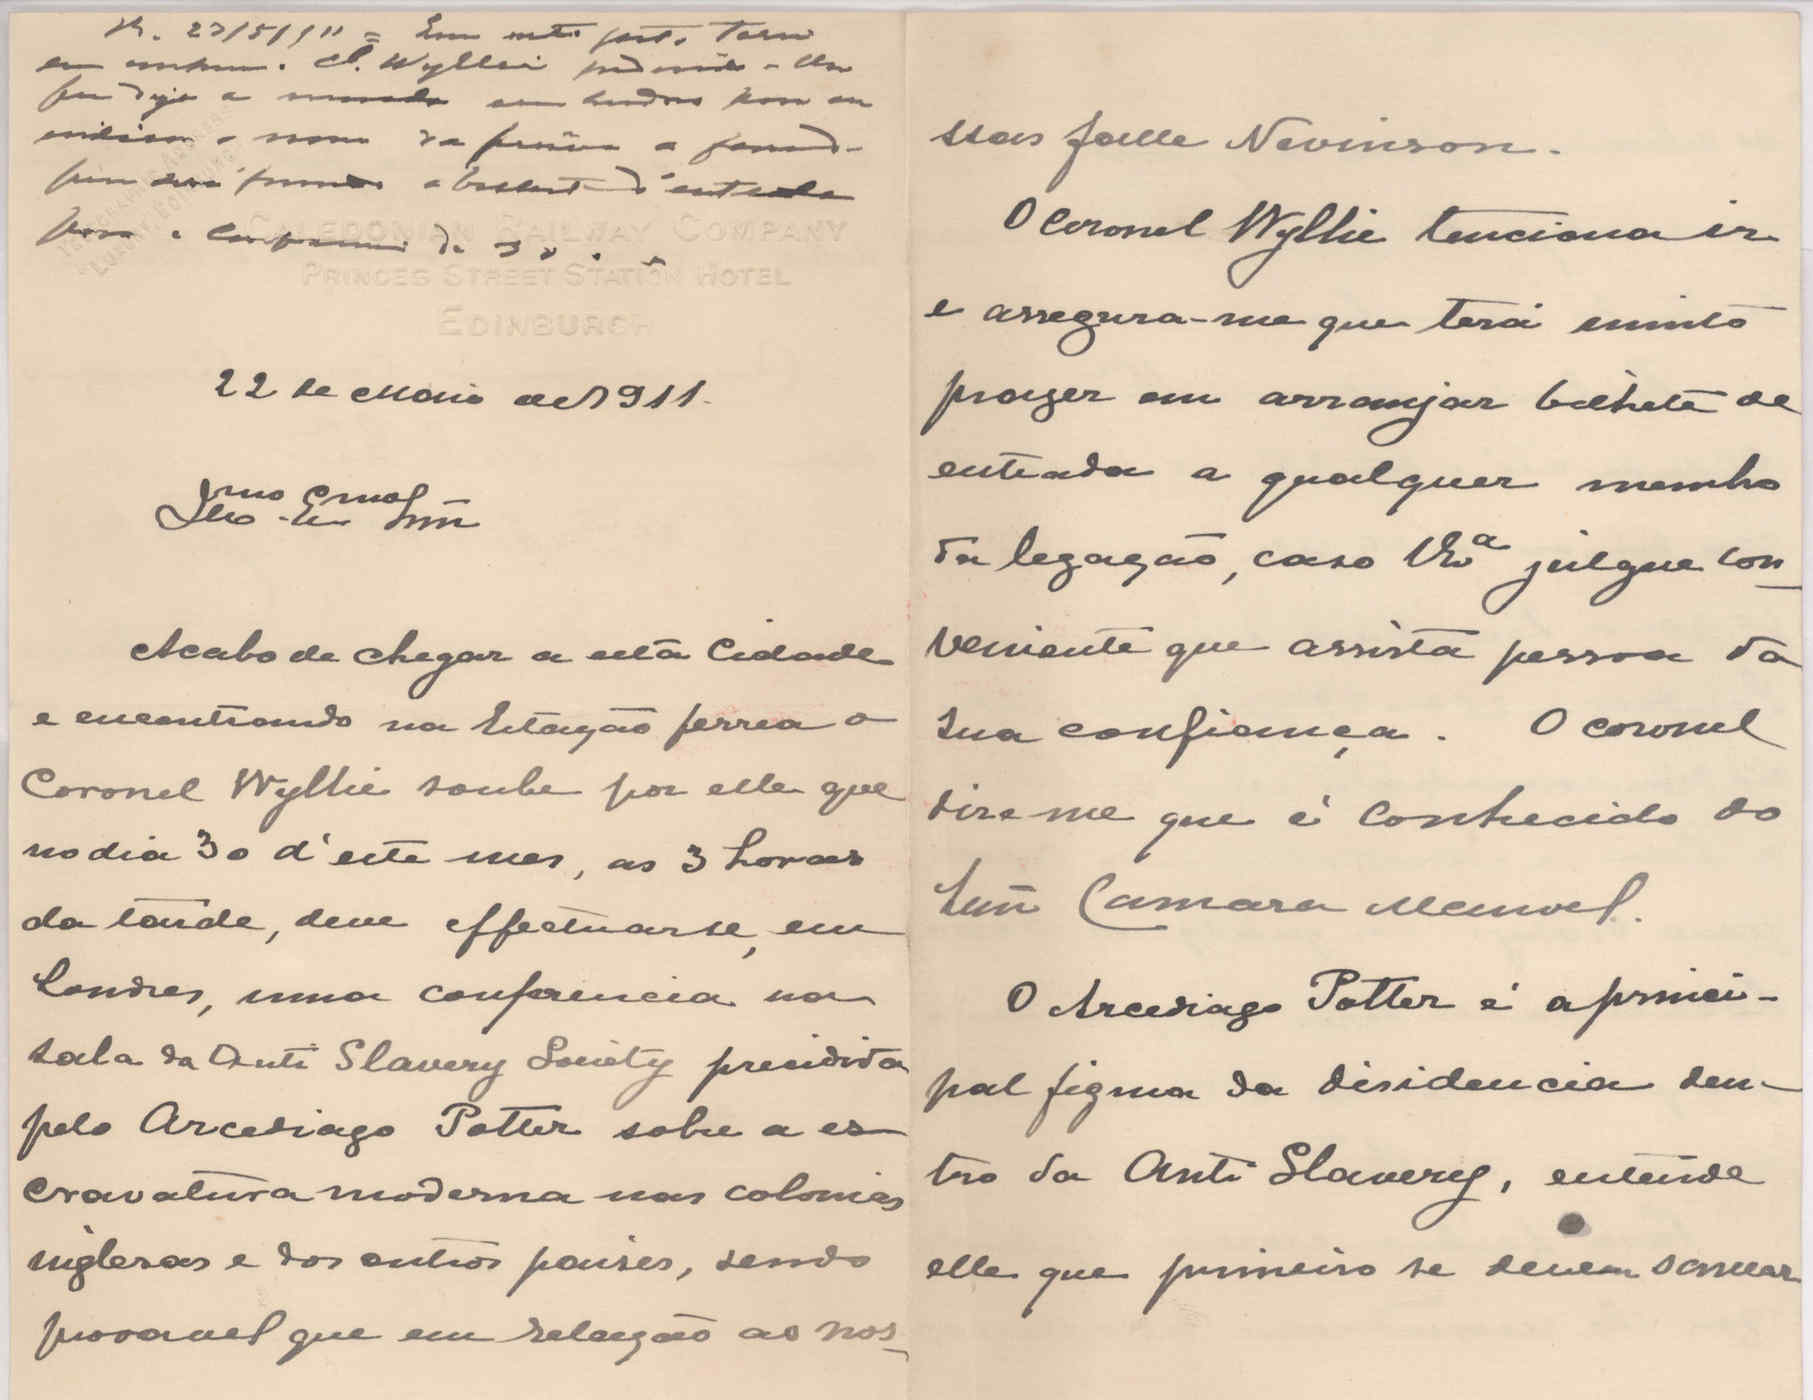 R. 23/5/911 =
Cl. Wyllie
CALEDONIAN RAILWAY COMPANY
PRINCES STREET STATION HOTEL
EDINBURGH
22 de Maio de 1911.
Illmo Exmo Snr
Acabo de chegar a esta cidade
e encontrando na estação ferrea o
Coronel Wyllie soube por elle que
no dia 30 d'este mes, as 3 horas
da tarde, deve effectuar-se, em
Londres, uma conferencia na
sala da Anti Slavery Society presidida
pelo Arcediago Potter sobre a es
cravatura moderna nas colonias
inglesas e dos outros paises, sendo
provavel que em relação as nos-
sas falle Nevinson.
O Coronel Wyllie tenciona ir
e assegura-me que terá muito
prazer em arranjar bilhete de
entrada a qualquer membro
da legação, caso VExª julgue con-
veniente que assista pessoa da
sua confiança. O coronel
dise-me que é conhecido do
Snr Camara Manoel.
O Arcediago Potter é a princi-
pal figura da disidencia den-
tro da Anti Slavery, entende
elle que primeiro se devem sanear